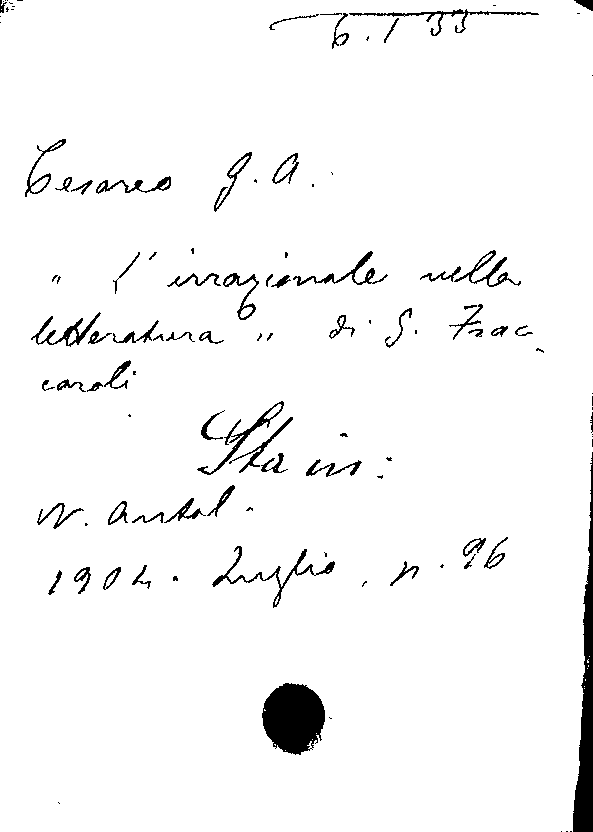 6.1 33
Cesareo G. A.
" L'irrazionale nella
letteratura " di G. Frac-
caroli
Sta in:
N. Antol.
1904. Luglio, p. 96